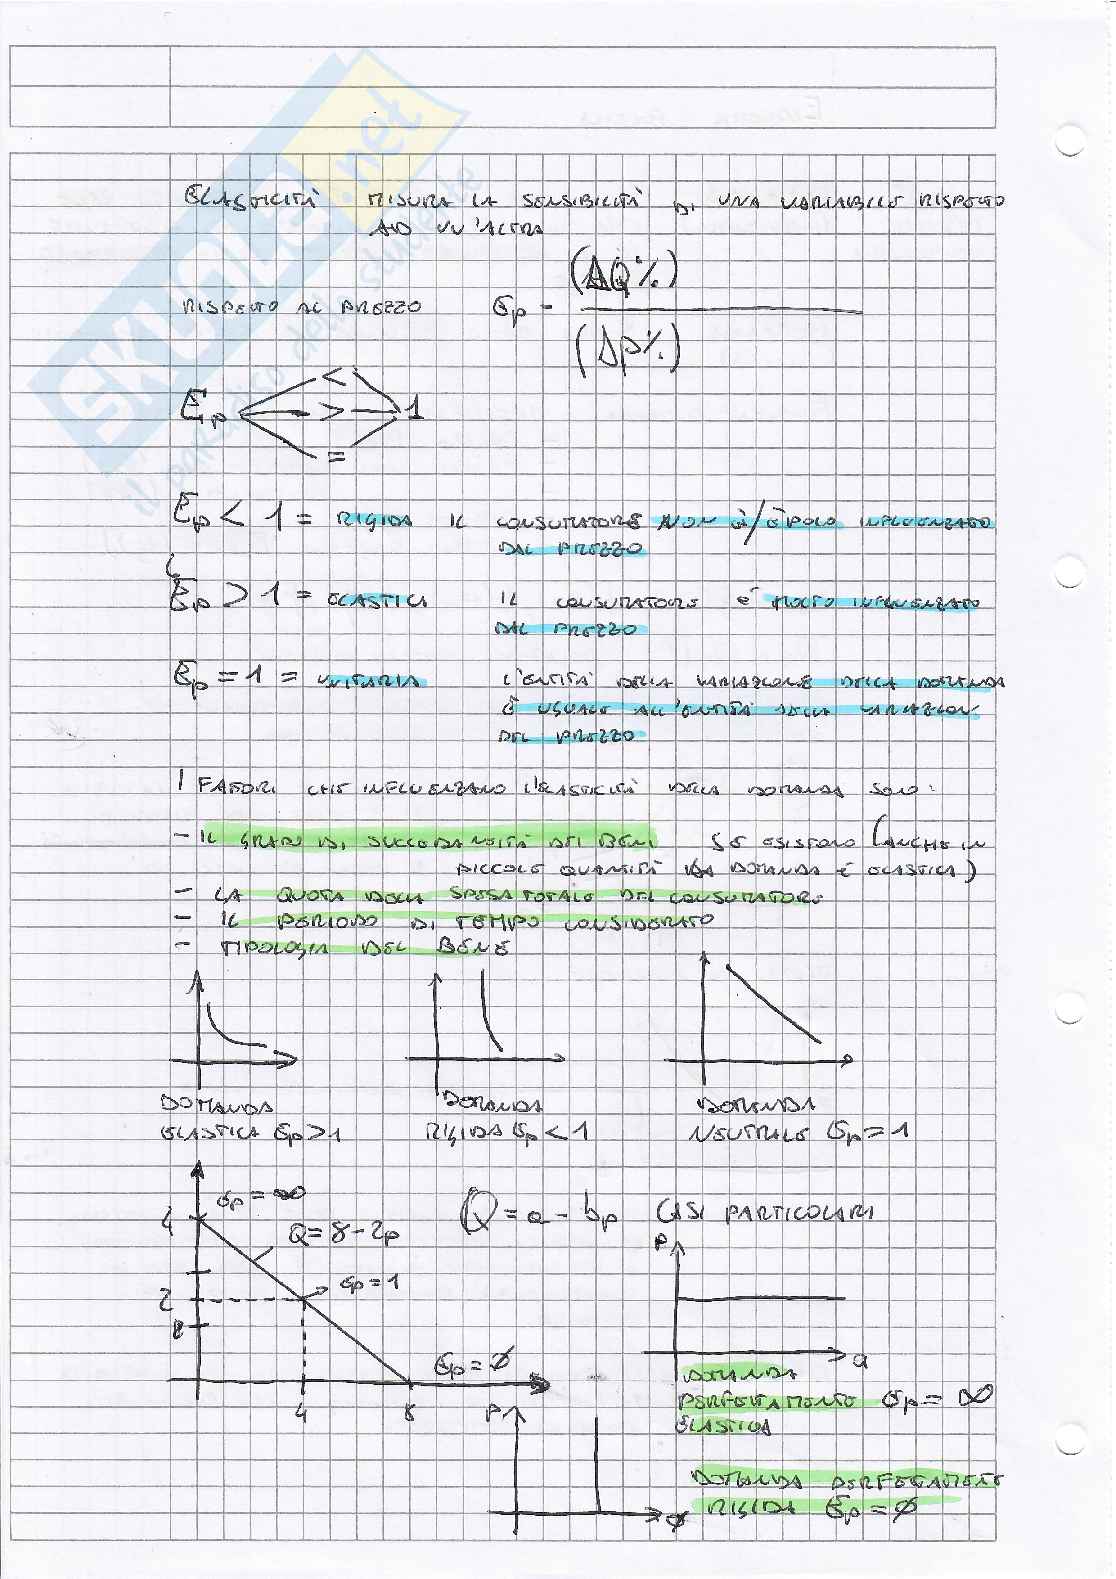 SKUOLA.net
il paradiso dello studente
ELASTICITÀ MISURA LA SENSIBILITÀ DI UNA VARIABILE RISPETTO
AD UN'ALTRA
RISPETTO AL PREZZO Ep = (ΔQ%)
(ΔP%)
Ep < > = 1
Ep < 1 = RIGIDA IL CONSUMATORE NON È/È POCO INFLUENZATO
DAL PREZZO
Ep > 1 = ELASTICA IL CONSUMATORE È MOLTO INFLUENZATO
DAL PREZZO
Ep = 1 = UNITARIA L'ENTITÀ DELLA VARIAZIONE DELLA DOMANDA
È UGUALE ALL'ENTITÀ DELLA VARIAZION
DEL PREZZO
I FATTORI CHE INFLUENZANO L'ELASTICITÀ DELLA DOMANDA SONO:
- IL GRADO DI SUCCEDANEITÀ DEI BENI SE ESISTONO (ANCHE IN
PICCOLE QUANTITÀ LA DOMANDA È ELASTICA)
- LA QUOTA DELLA SPESA TOTALE DEL CONSUMATORE
- IL PERIODO DI TEMPO CONSIDERATO
- TIPOLOGIA DEL BENE
DOMANDA
ELASTICA Ep>1
DOMANDA
RIGIDA Ep<1
DOMANDA
NEUTRALE Ep=1
Ep=∞
Q=8-2p
Q=a-bp CASI PARTICOLARI
4
Ep=1
2
Ep=∅
4 8
P
Q
DOMANDA
PERFETTAMENTE Ep=∞
ELASTICA
P
DOMANDA PERFETTAMENTE
RIGIDA Ep=∅